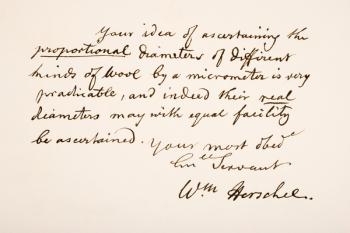 Your idea of ascertaining the
proportional diameters of different
kinds of Wool by a micrometer is very
practicable, and indeed their real
diameters may with equal facility
be ascertained. Your most obed
Servant
Wm Herschel.